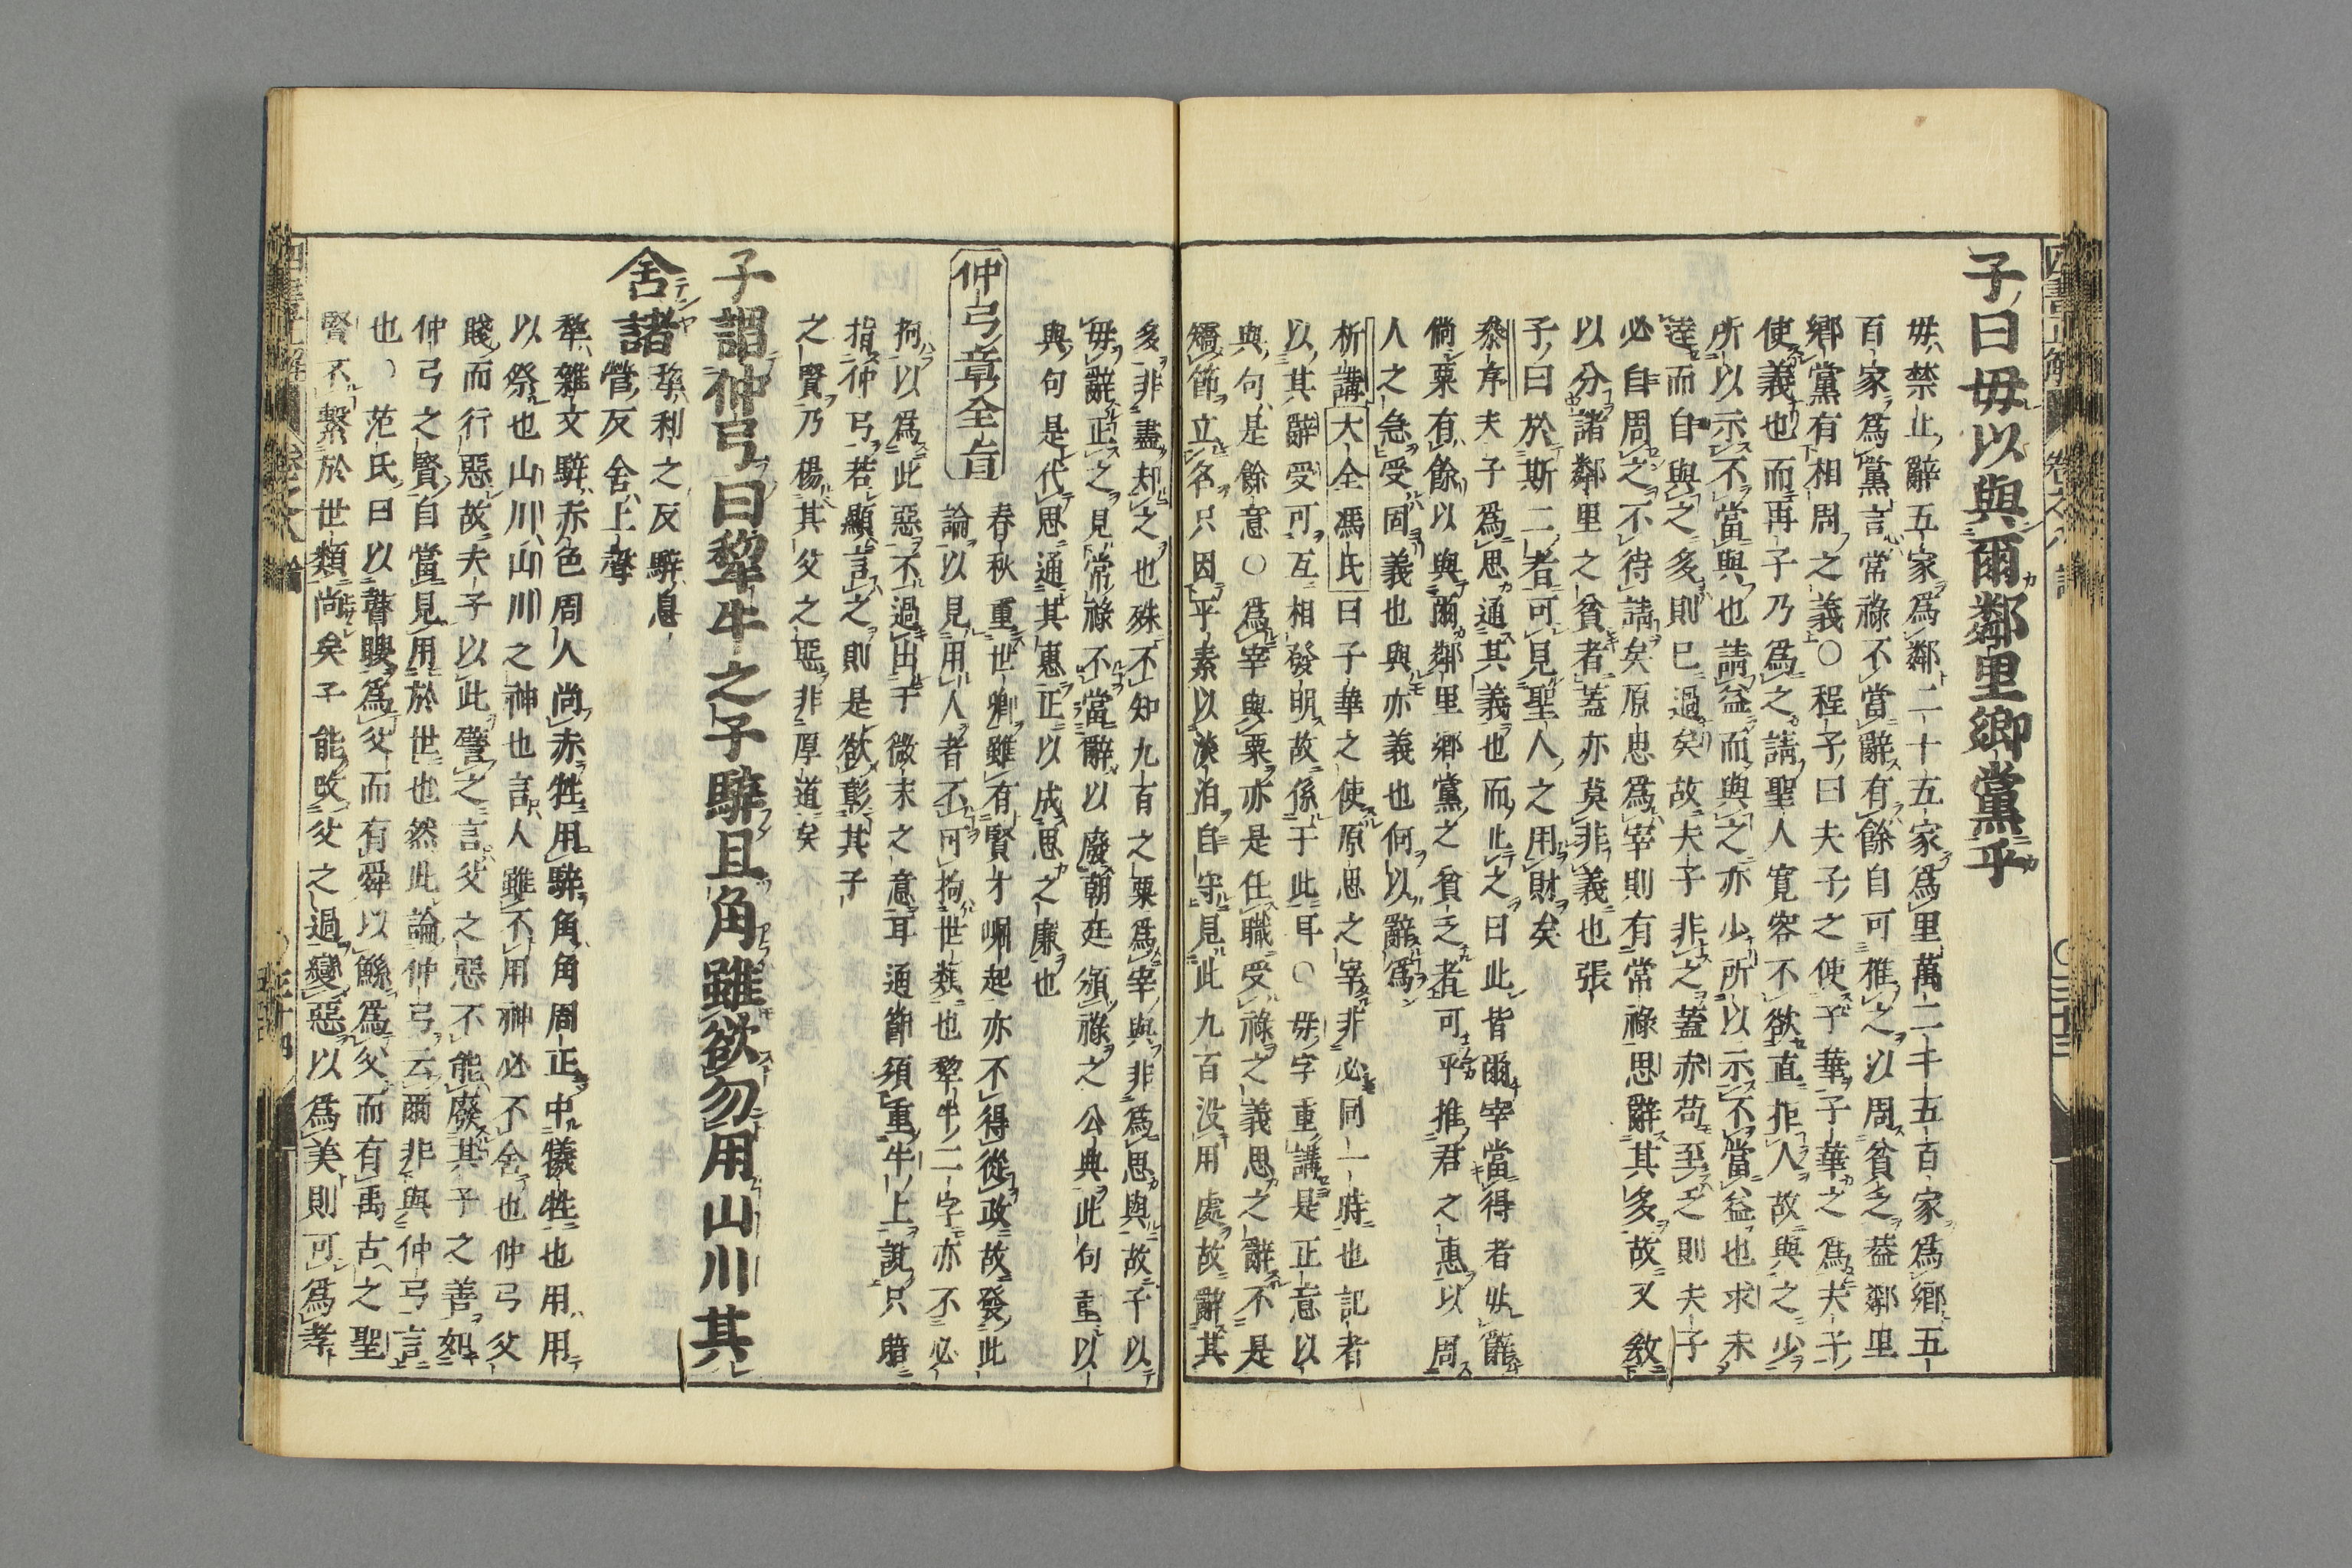 子曰毋以與爾鄰里鄉黨乎
毋禁止辭五家爲鄰二十五家爲里萬二千五百家爲鄉五
百家爲黨言常祿不當辭有餘自可推之以周貧乏蓋鄰里
鄉黨有相周之義○程子曰夫子之使子華子華之爲夫子
使義也而冉子乃爲之請聖人寬容不欲直拒人故與之少
所以示不當與也請益而與之亦少所以示不當益也求未
達而自與之多則已過矣故夫子非之蓋赤苟至乏則夫子
必自周之不待請矣原思爲宰則有常祿思辭其多故又教
以分諸鄰里之貧者蓋亦莫非義也張
子曰於斯二者可見聖人之用財矣
叅序夫子爲思通其義也而止之曰此皆爾宰當得者必辭
倘粟有餘以與爾鄰里鄉黨之貧乏者可乎推君之惠以周
人之急受固義也與亦義也何以辭爲
析講大全馮氏曰子華之使原思之宰非必同一時也記者
以其辭受可互相發明故係于此耳○毋字重講是正意以
與句是餘意○爲宰與粟亦是任職受祿之義思之辭不是
矯節立名只因平素以淡泊自守見此九百没用處故辭其
多非盡却之也殊不知九百之粟爲宰與非爲思與故子以
毋辭正之見常祿不當辭以廢朝廷頒祿之公典此句重以
與句是代思通其惠正以成思之廉也
仲弓章全旨
春秋重世卿雖有賢才崛起亦不得從政故發此
論以見用人者不可拘世類也犂牛二字亦不必
拘以爲此惡不過出于微末之意耳通節須重牛上說只暗
指仲弓若顯言之則是欲彰其子
之賢乃楊其父之惡非厚道矣
子謂仲弓曰犂牛之子騂且角雖欲勿用山川其
舍諸
犂利之反騂息
營反舍上聲
犂雜文騂赤色周人尚赤牲用騂角角周正中犧牲也用用
以祭也山川山川之神也言人雖不用神必不舍也仲弓父
賤而行惡故夫子以此譬之言父之惡不能廢其子之善如
仲弓之賢自當見用於世也然此論仲弓云爾非與仲弓言
也○范氏曰以瞽瞍爲父而有舜以鯀爲父而有禹古之聖
賢不繫於世類尚矣子能改父之過變惡以爲美則可爲孝